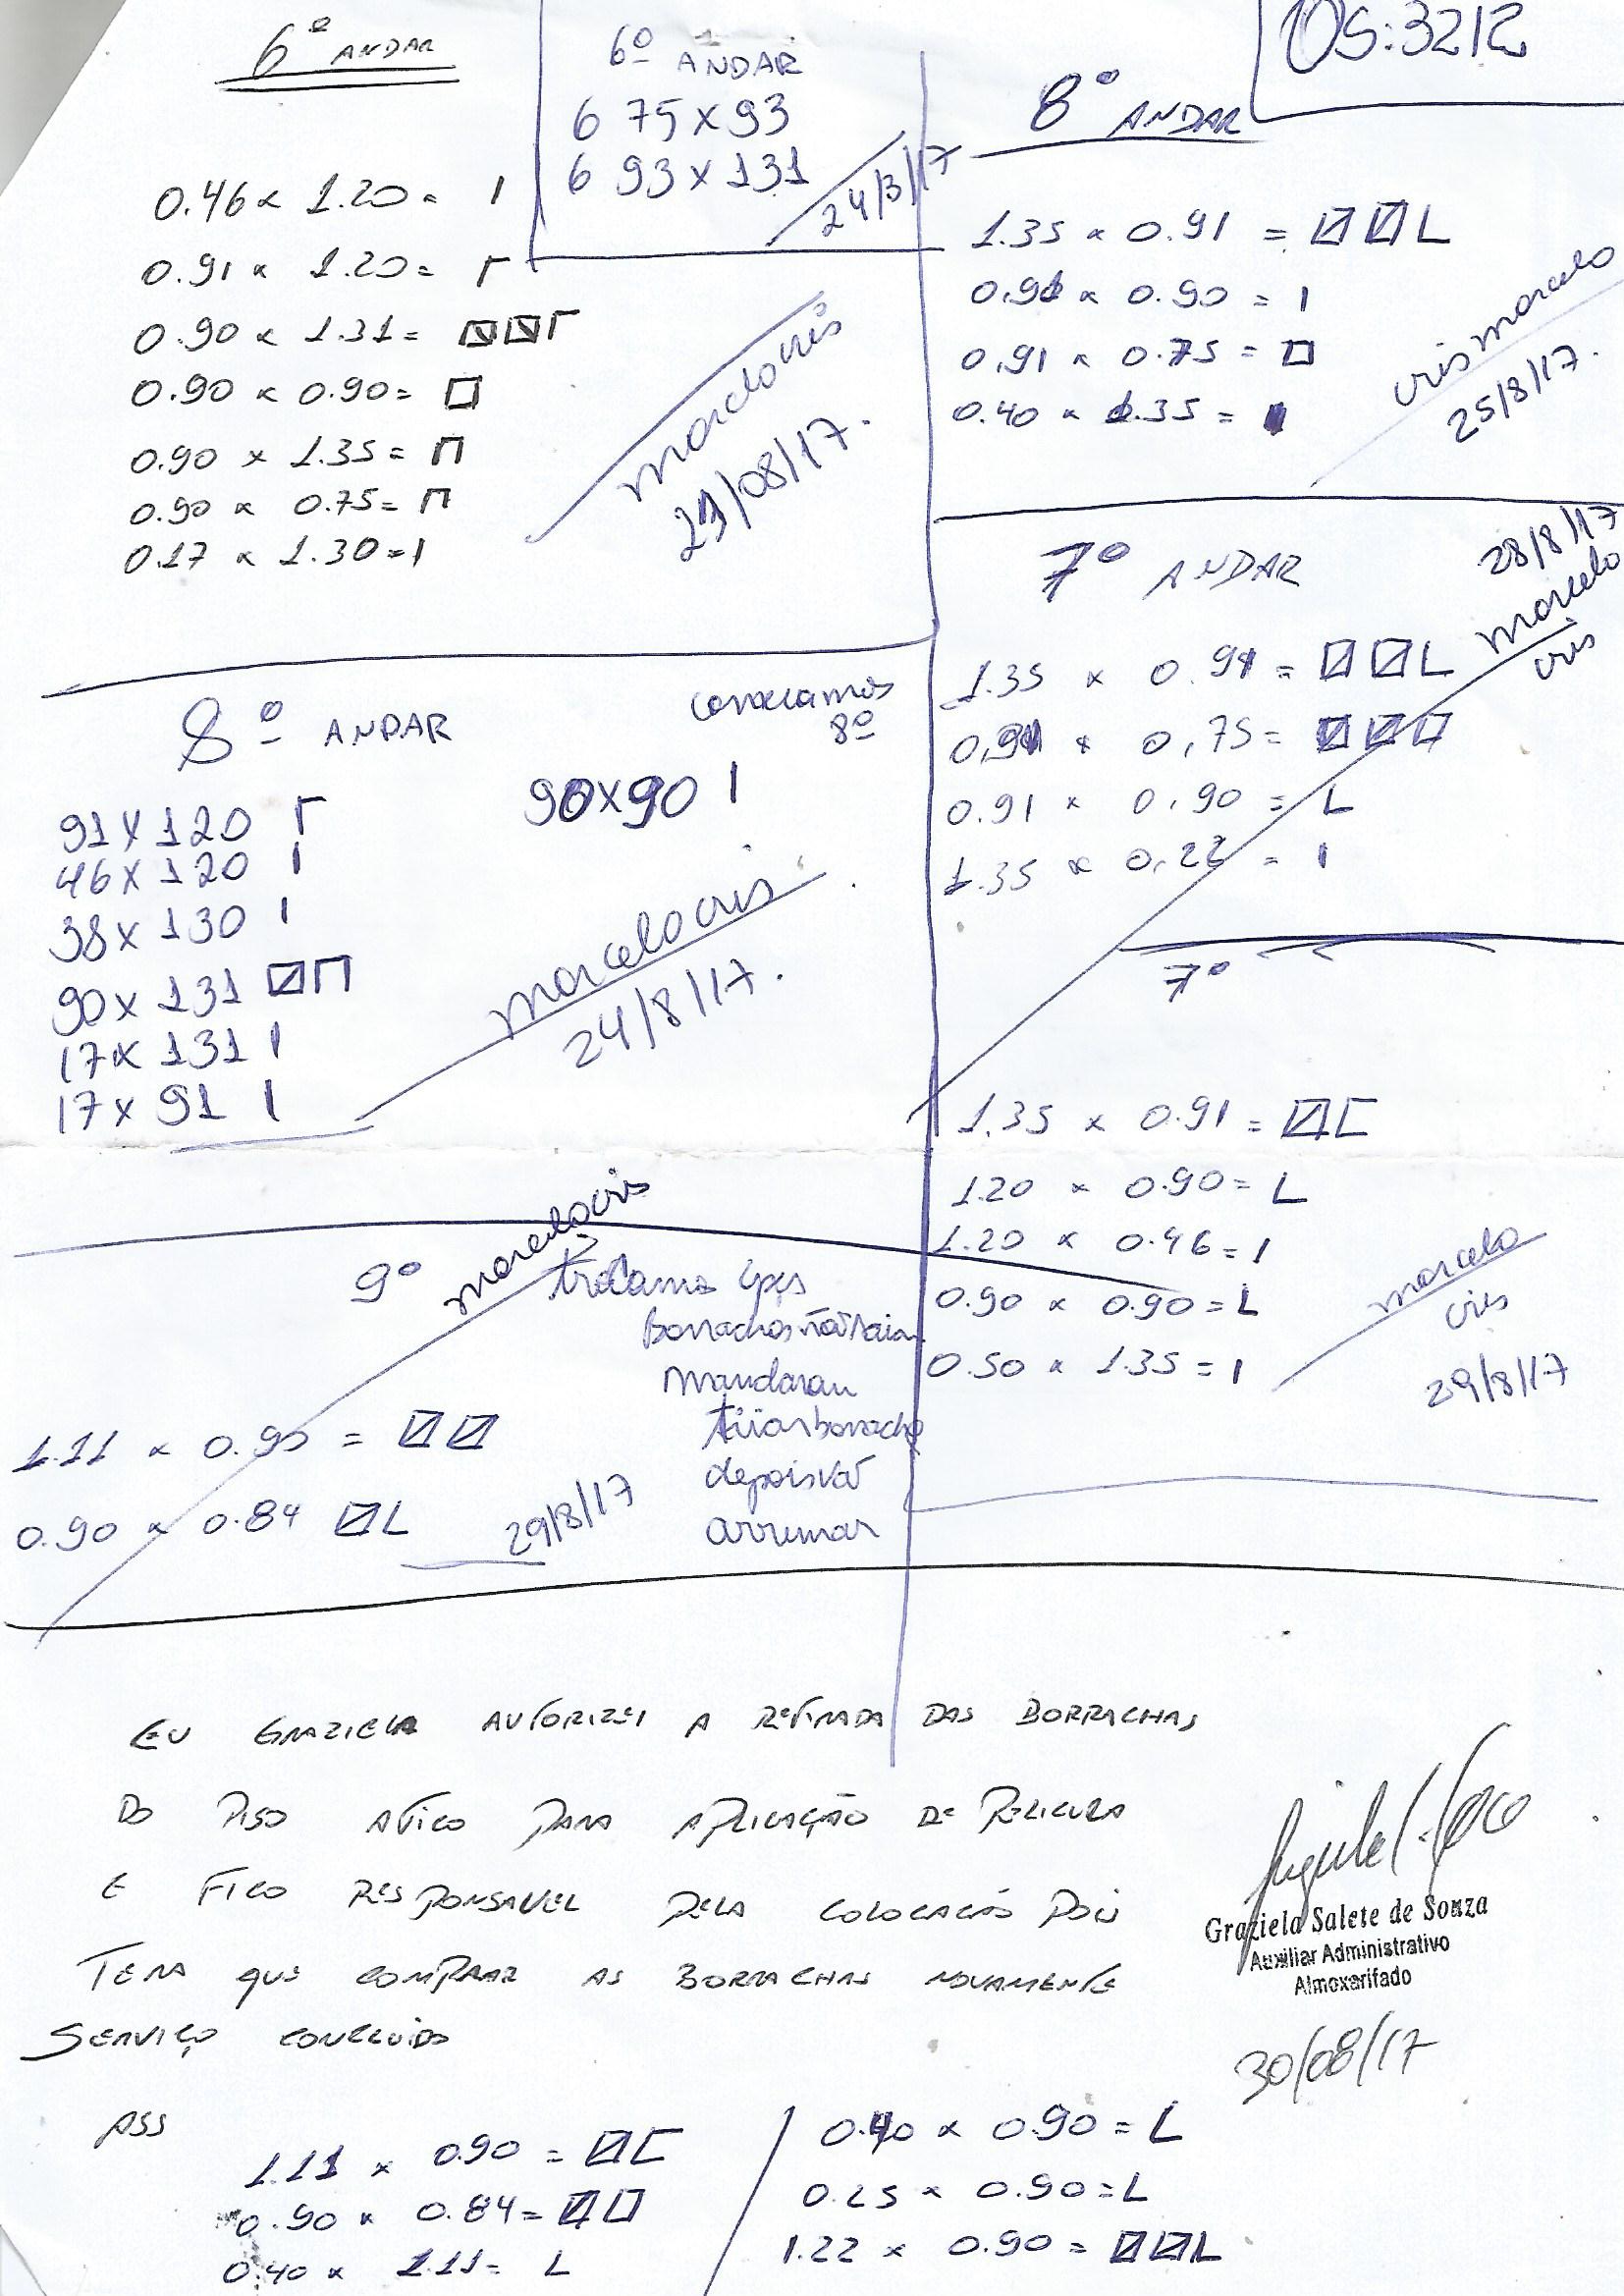 OS:3212
6º ANDAR
0.46 x 1.20 =
0.91 x 1.20 =
0.90 x 1.31 =
0.90 x 0.90 =
0.90 x 1.35 =
0.90 x 0.75 =
0.17 x 1.30 =
marcelo cris
29/08/17.
6º ANDAR
6 75 x 93
6 93 x 131
24/3/17
8º ANDAR
1.35 x 0.91 =
0.91 x 0.90 =
0.91 x 0.75 =
0.40 x 1.35 =
cris marcelo
25/8/17.
7º ANDAR
28/8/17
marcelo
cris
1.35 x 0.91 =
0,91 x 0,75 =
0.91 x 0,90 =
1.35 x 0,22 =
8º ANDAR
8º
90x90
91 x 120
46 x 120
38 x 130
90 x 131
17 x 131
17 x 91
marcelo cris
24/8/17.
7º
1.35 x 0.91 =
1.20 x 0.90 =
1.20 x 0.46 =
0.90 x 0.90 =
0.50 x 1.35 =
marcelo
cris
29/8/17
9º
marcelo cris
trocamo
mandaram
depois vai
arrumar
1.11 x 0.90 =
0.90 x 0.84
29/8/17
EU GRAZIELA AUTORIZEI A RETIRADA DAS BORRACHAS
DO PISO ATICO PARA APLICAÇÃO DE PELICULA
E FICO RESPONSAVEL PELA COLOCACÃO POIS
TERA QUE COMPRAR AS BORRACHAS NOVAMENTE
SERVIÇO CONCLUIDO
ASS
Graziela Salete de Souza
Auxiliar Administrativo
Almoxarifado
30/08/17
1.11 x 0.90 =
0.90 x 0.84 =
0.40 x 1.11 =
0.40 x 0.90 =
0.25 x 0.90 =
1.22 x 0.90 =